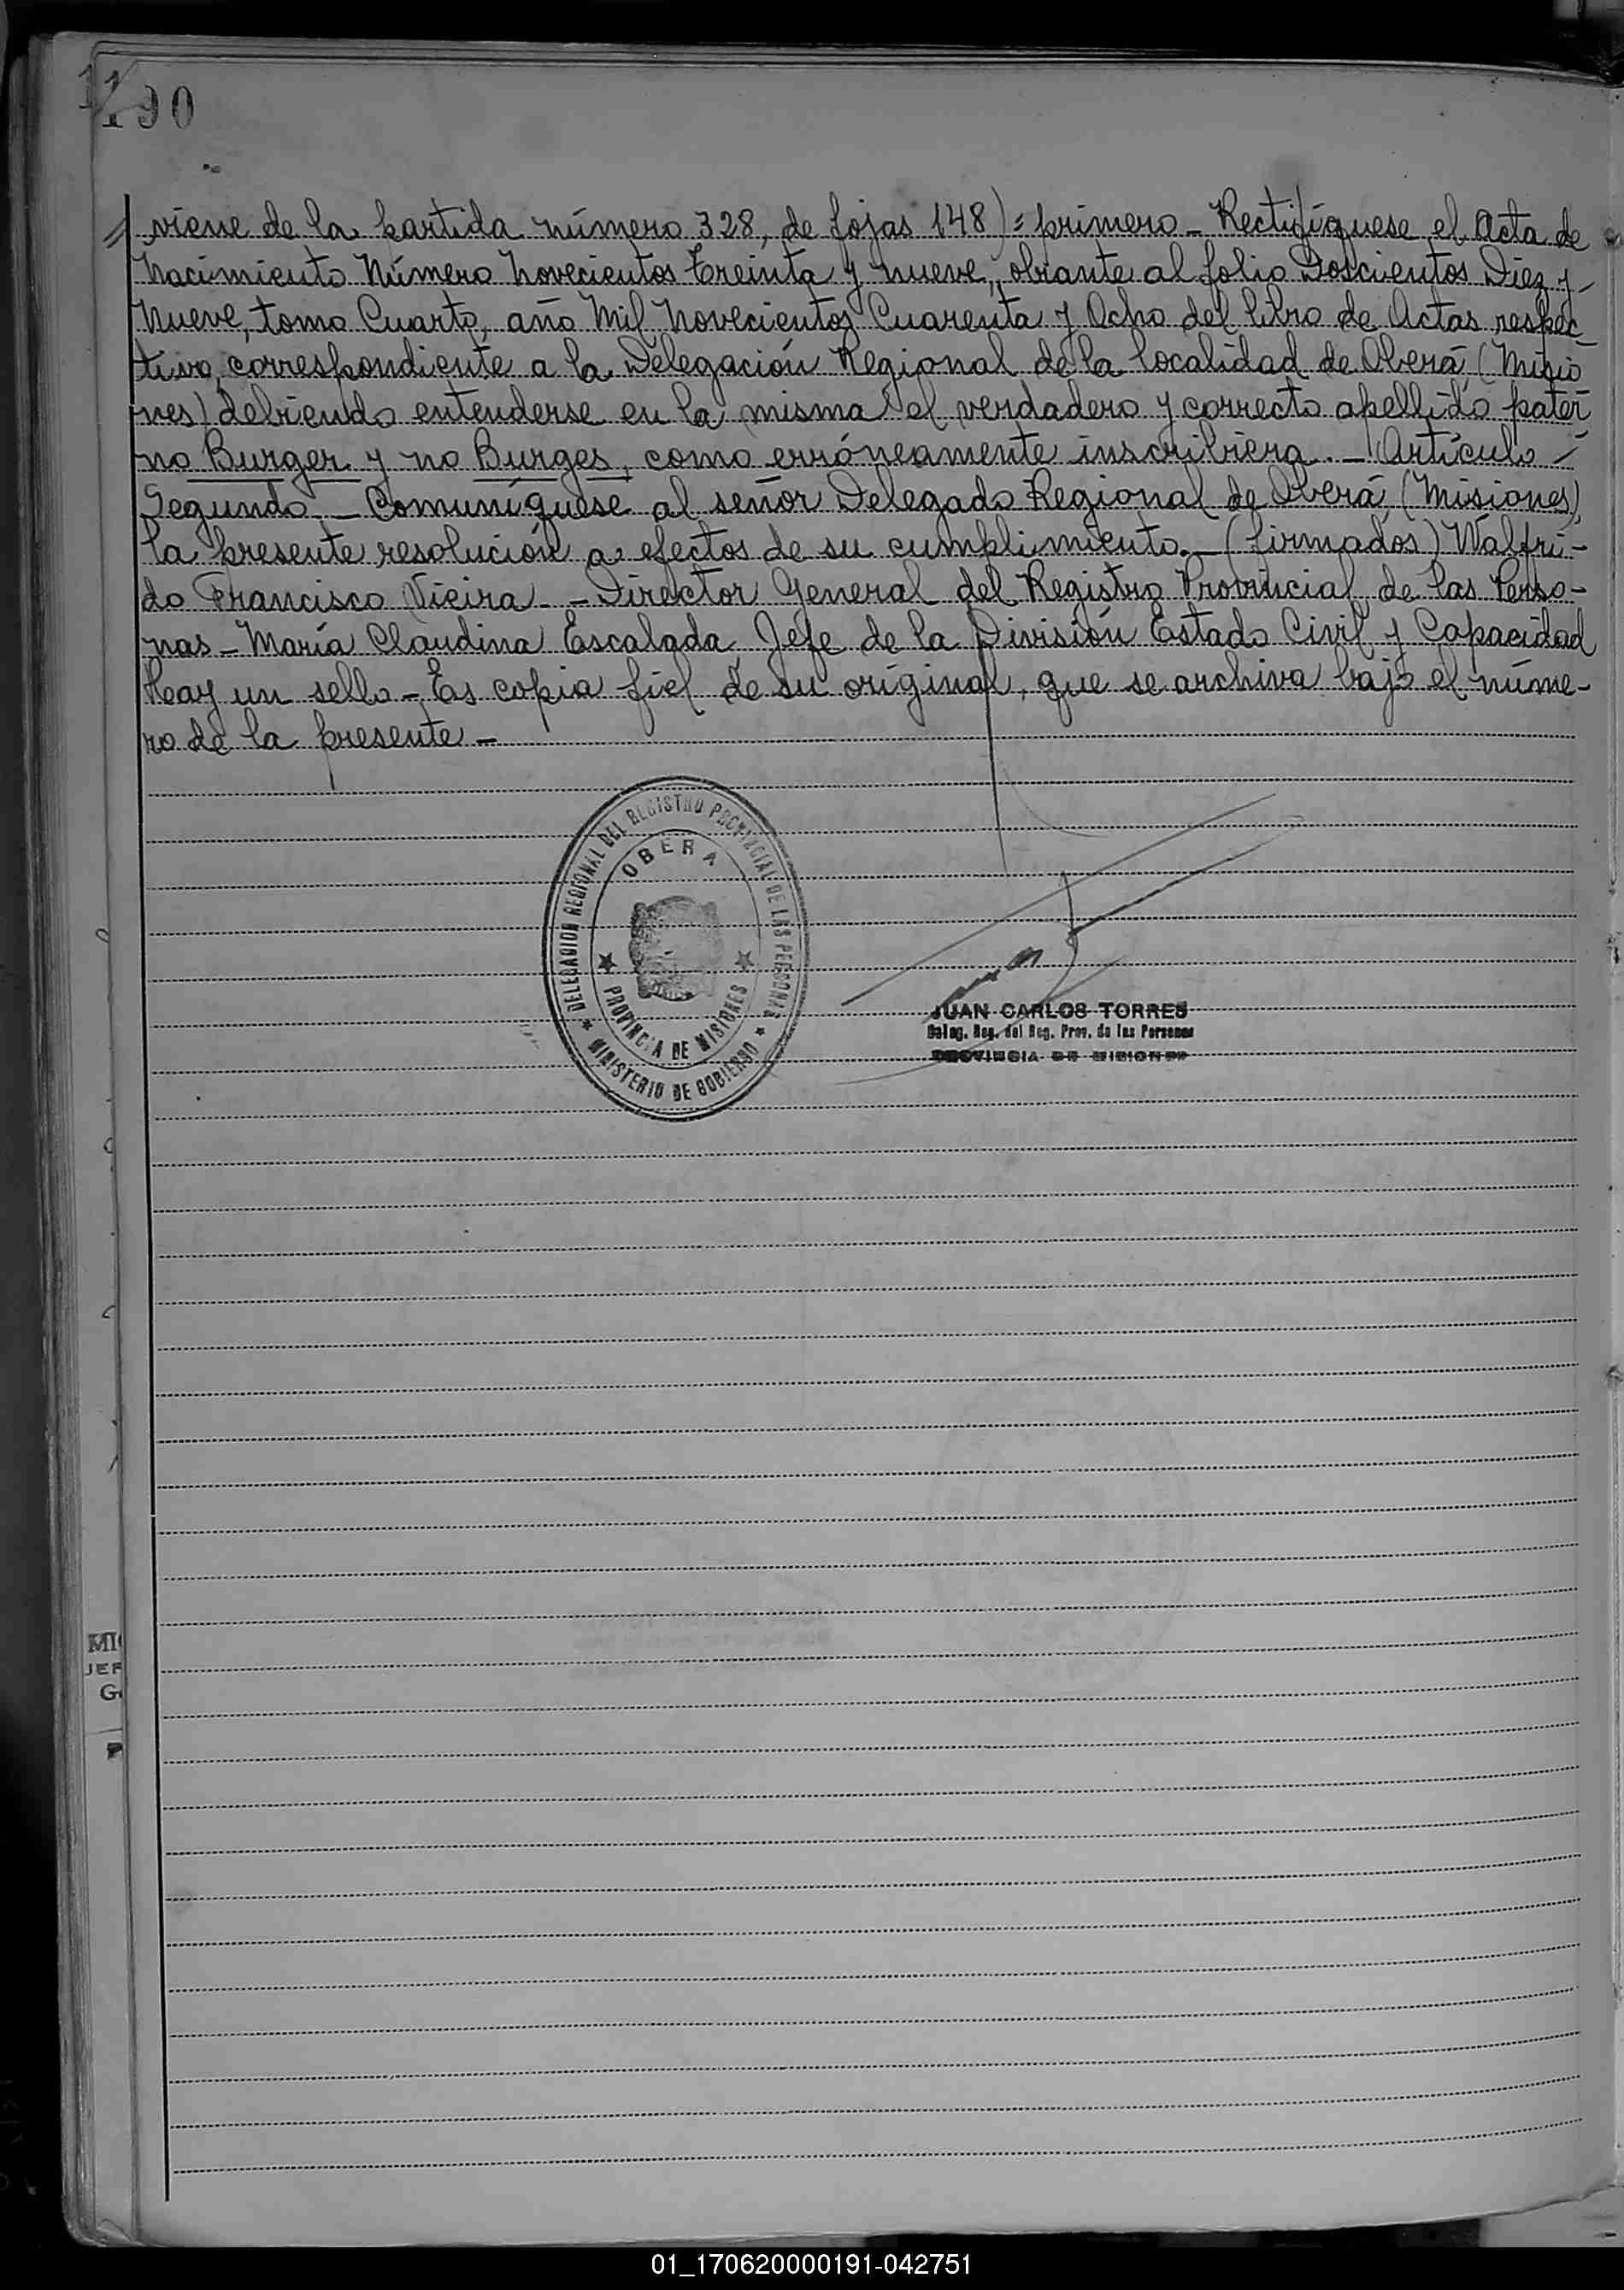 190
viene de la partida número 328, de fojas 148)= primero - Rectifíquese el Acta de
Nacimiento Número Novecientos Treinta y nueve, obrante al folio Doscientos Diez y
Nueve, tomo Cuarto, año Mil Novecientos Cuarenta y Ocho del libro de Actas respec-
tivo, correspondiente a la Delegación Regional de la localidad de Oberá (Misio
nes) debiendo entenderse en la misma el verdadero y correcto apellido pater
no Burger y no Burges, como erróneamente inscribiera. - Artículo -
Segundo. - Comuníquese al señor Delegado Regional de Oberá (Misiones),
la presente resolución a efectos de su cumplimiento. - (firmados) Walfri-
do Francisco Vieira. - Director General del Registro Provincial de las Perso-
nas - María Claudina Escalada Jefe de la División Estado Civil y Capacidad
Hay un sello - Es copia fiel de su original, que se archiva bajo el núme-
ro de la presente -
DELEGACION REGIONAL DEL REGISTRO PROVINCIAL DE LAS PERSONAS
OBERA
PROVINCIA DE MISIONES
MINISTERIO DE GOBIERNO
JUAN CARLOS TORRES
Deleg. Reg. del Reg. Prov. de las Personas
PROVINCIA DE MISIONES
MI
JEF
G
01_170620000191-042751